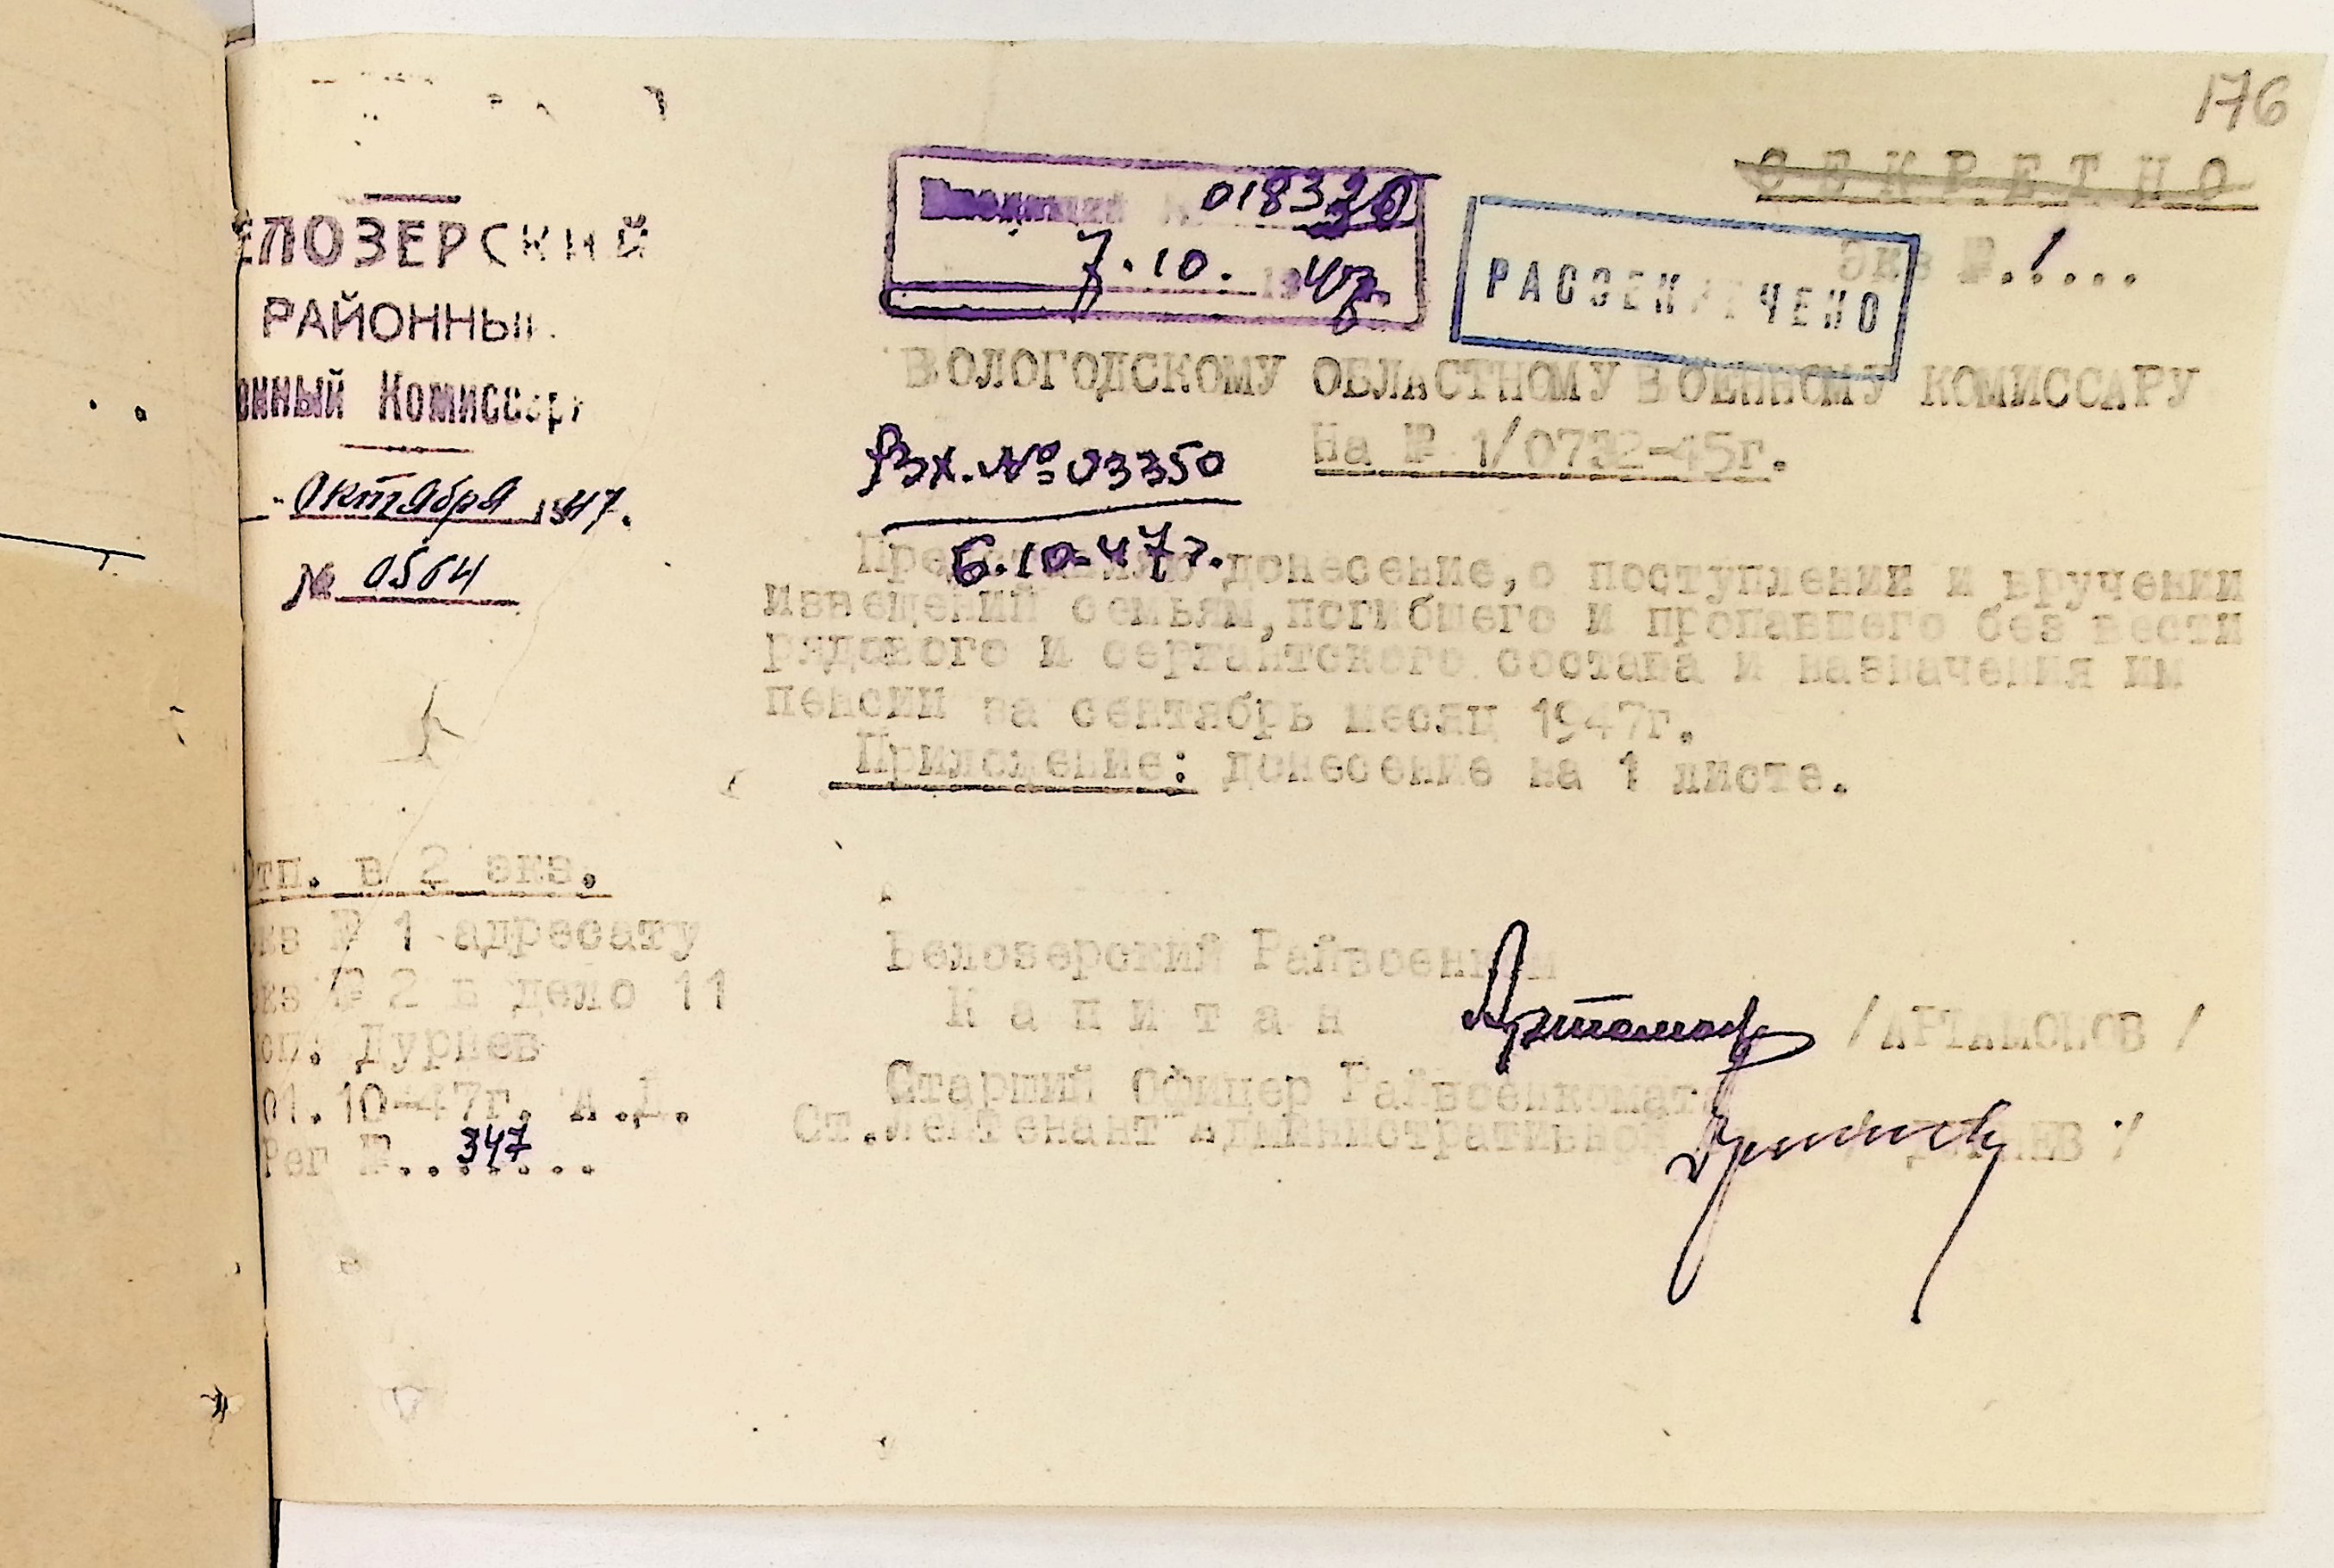 176
СЕКРЕТНО
Экз №.1....
018320
7.10. 1947
РАССЕКРЕЧЕНО
ЕЛОЗЕРСКИЙ
РАЙОННЫЙ
онный Комиссар
Октября 1947.
№ 0504
ВОЛОГОДСКОМУ ОБЛАСТНОМУ ВОЕННОМУ КОМИССАРУ
На № 1/0732-45г.
Вх. № 03350
6.10-47г.
Представляю донесение,о поступлении и вручении
извещений семьям,погибшего и пропавшего без вести
рядового и сержантского состава и назначения им
пенсии за сентябрь месяц 1947г.
Приложение: донесение на 1 листе.
Отп. в 2 экз.
кз № 1 адресату
кз № 2 в дело 11
01.10-47г.
Рег №..347.....
Белозерский Райвоенком
Капитан /АРТАМОНОВ/
Старший Офицер Райвоенкомата
Ст.Лейтенант Административной